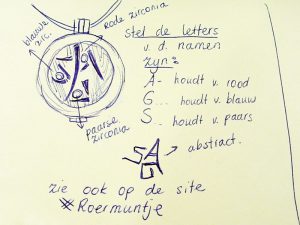 rode zirconia
blauwe
zirc.
paarse
zirconia
stel de letters
v. d. namen
zijn:
A - houdt v. rood
G... houdt v. blauw
S... houdt v. paars
S A
G
abstract.
zie ook op de site
* Roermuntje